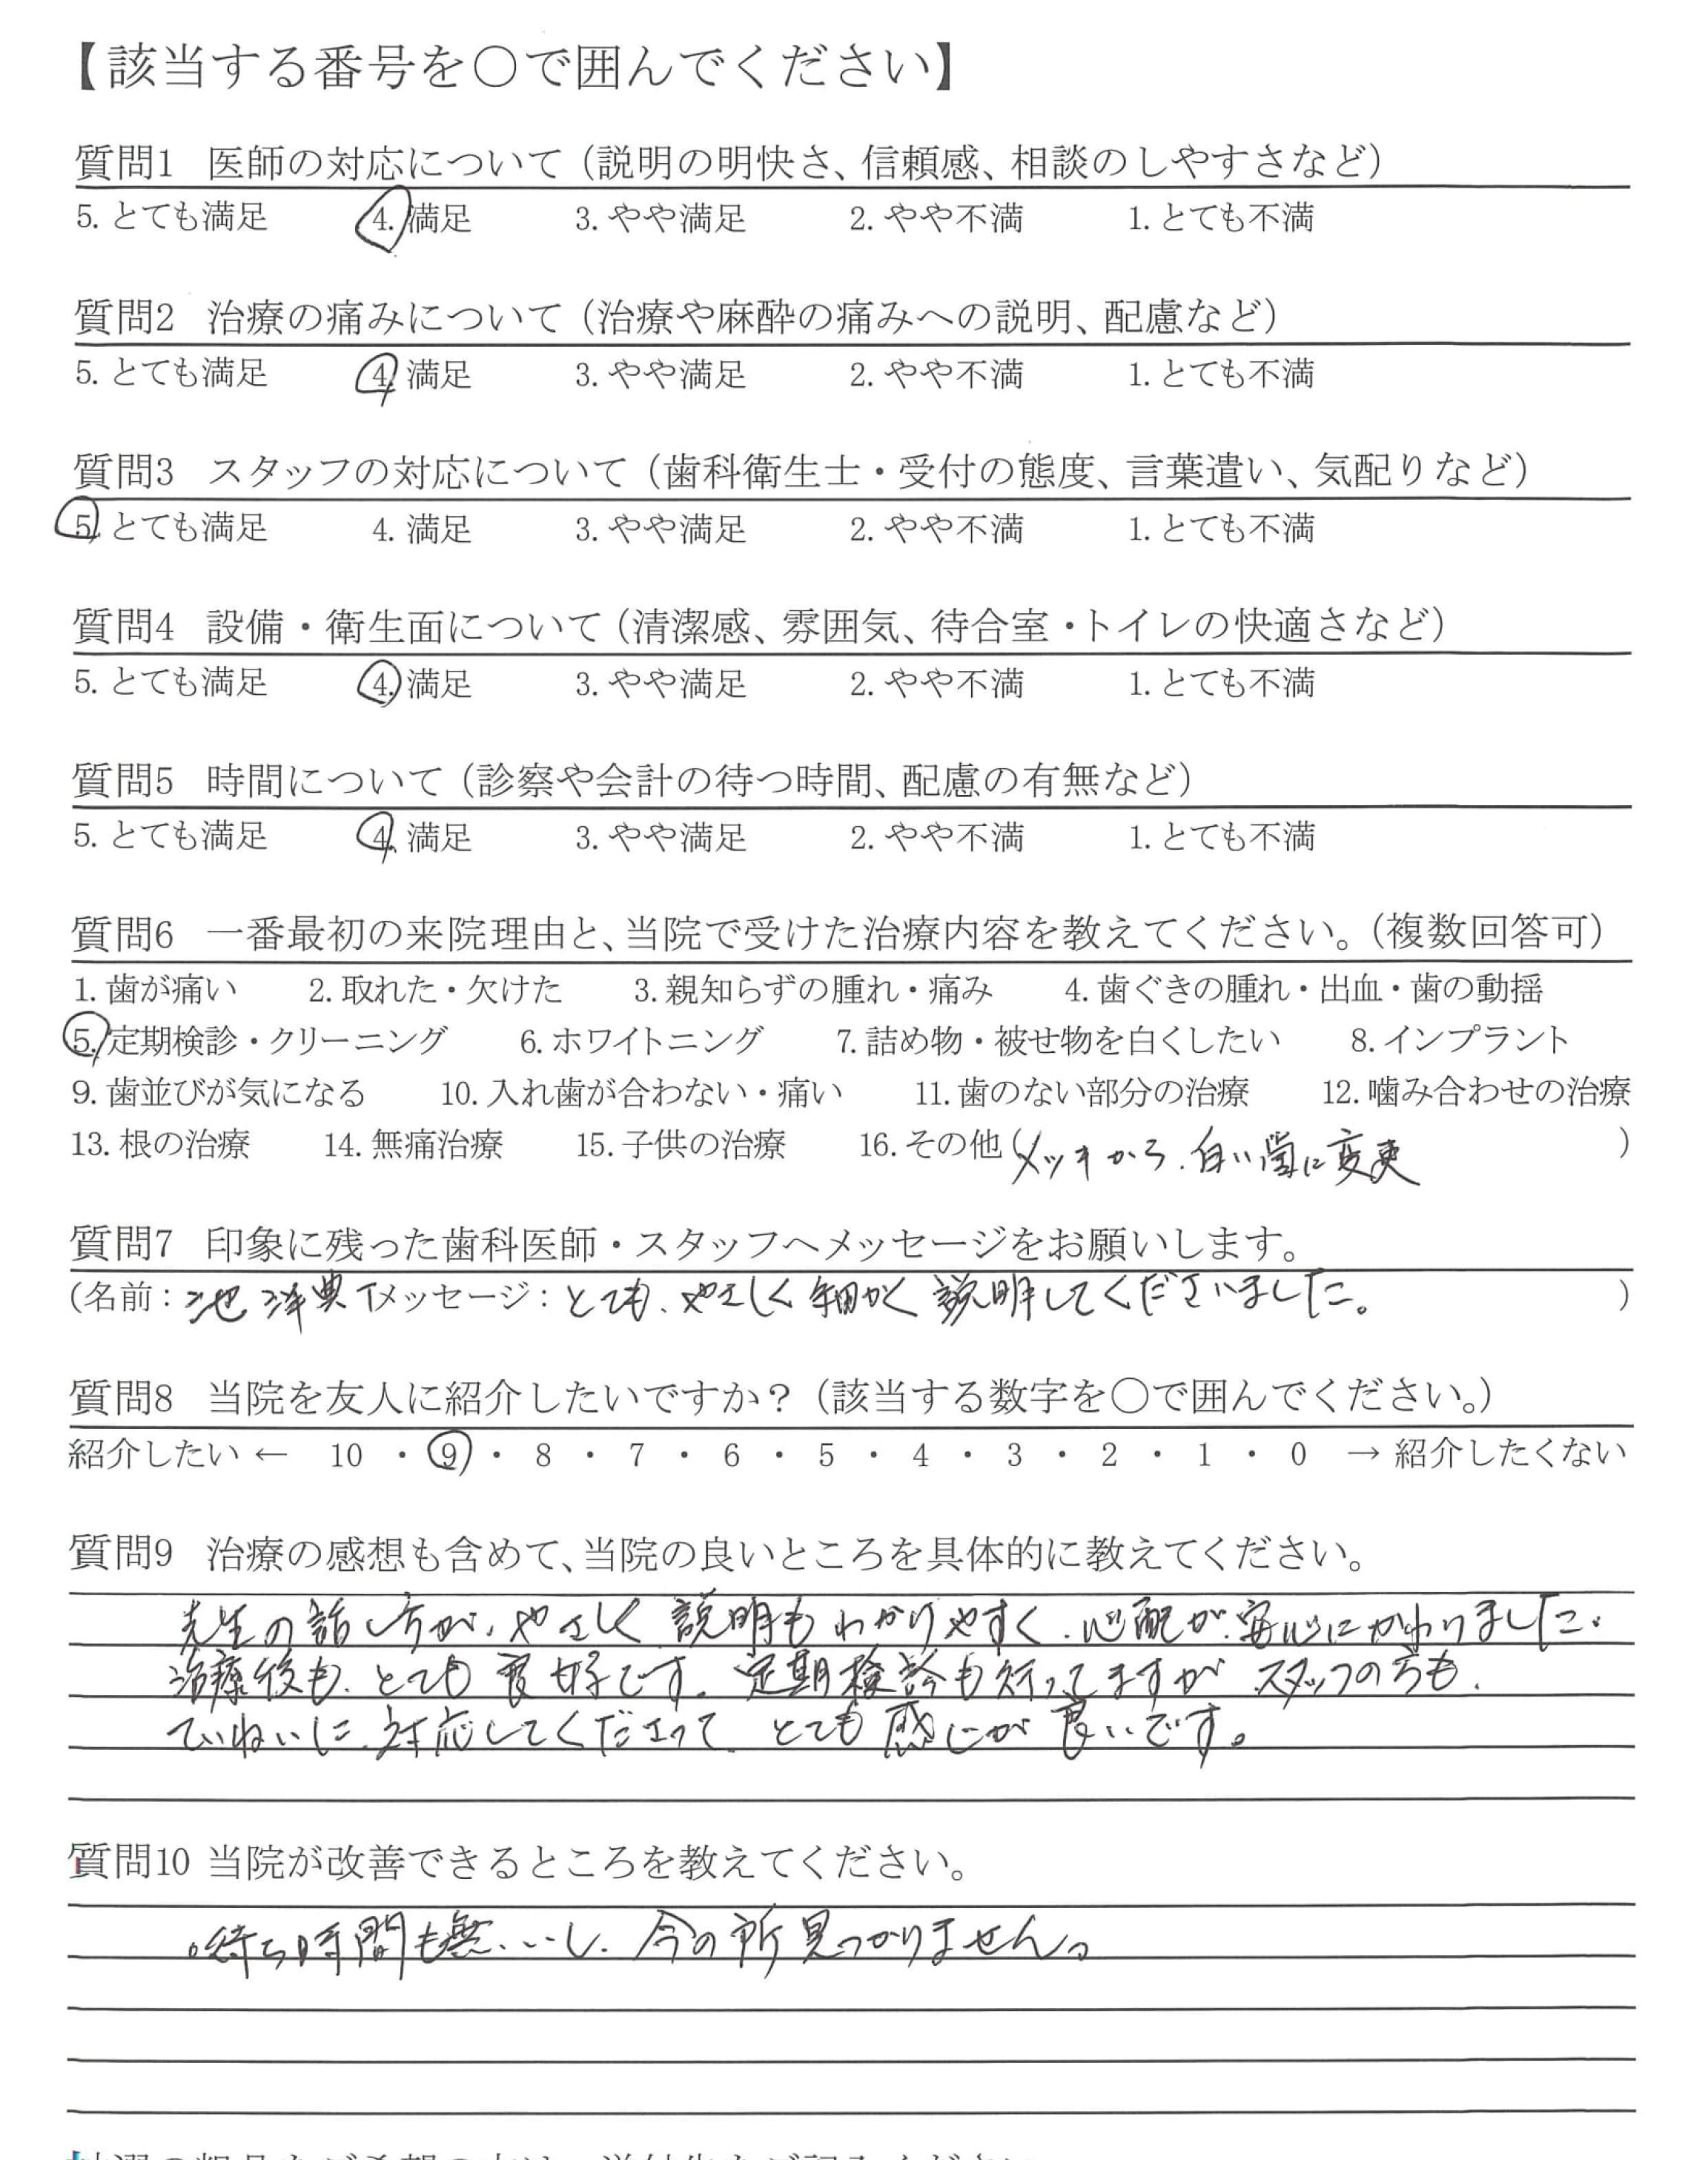 【該当する番号を○で囲んでください】
質問1 医師の対応について（説明の明快さ、信頼感、相談のしやすさなど）
5. とても満足 4. 満足 3. やや満足 2. やや不満 1. とても不満
質問2 治療の痛みについて（治療や麻酔の痛みへの説明、配慮など）
5. とても満足 4. 満足 3. やや満足 2. やや不満 1. とても不満
質問3 スタッフの対応について（歯科衛生士・受付の態度、言葉遣い、気配りなど）
5. とても満足 4. 満足 3. やや満足 2. やや不満 1. とても不満
質問4 設備・衛生面について（清潔感、雰囲気、待合室・トイレの快適さなど）
5. とても満足 4. 満足 3. やや満足 2. やや不満 1. とても不満
質問5 時間について（診察や会計の待つ時間、配慮の有無など）
5. とても満足 4. 満足 3. やや満足 2. やや不満 1. とても不満
質問6 一番最初の来院理由と、当院で受けた治療内容を教えてください。（複数回答可）
1. 歯が痛い 2. 取れた・欠けた 3. 親知らずの腫れ・痛み 4. 歯ぐきの腫れ・出血・歯の動揺
5. 定期検診・クリーニング 6. ホワイトニング 7. 詰め物・被せ物を白くしたい 8. インプラント
9. 歯並びが気になる 10. 入れ歯が合わない・痛い 11. 歯のない部分の治療 12. 噛み合わせの治療
13. 根の治療 14. 無痛治療 15. 子供の治療 16. その他（メッキから、白い歯に変更）
質問7 印象に残った歯科医師・スタッフへメッセージをお願いします。
（名前：池 洋典 メッセージ：とても、やさしく細かく説明してくださいました。）
質問8 当院を友人に紹介したいですか？（該当する数字を○で囲んでください。）
紹介したい ← 10 ・ 9 ・ 8 ・ 7 ・ 6 ・ 5 ・ 4 ・ 3 ・ 2 ・ 1 ・ 0 → 紹介したくない
質問9 治療の感想も含めて、当院の良いところを具体的に教えてください。
先生の話し方が、やさしく説明もわかりやすく、心配が、安心にかわりました。
治療後も、とても良好です。定期検診も行ってますが スタッフの方も、
ていねいに、対応してくださって、とても感じが良いです。
質問10 当院が改善できるところを教えてください。
。待ち時間も無いし、今の所見つかりません。